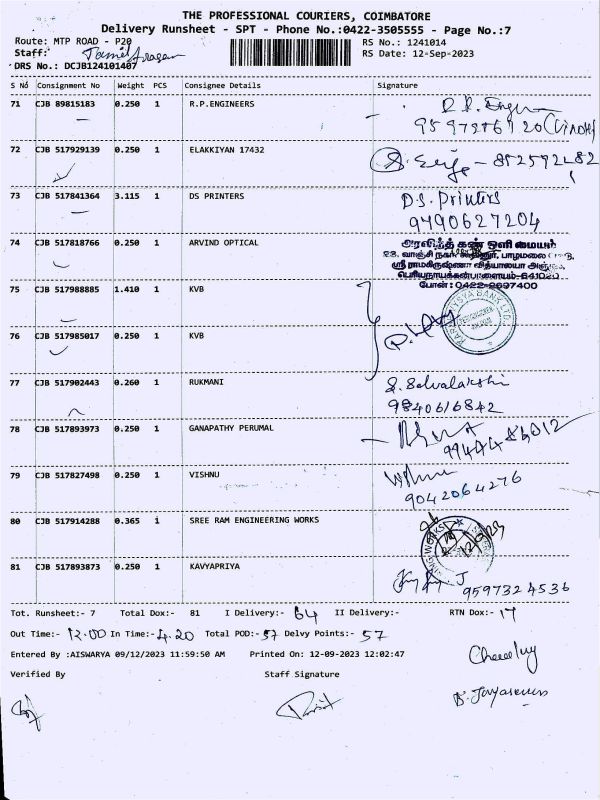 THE PROFESSIONAL COURIERS, COIMBATORE
Delivery Runsheet - SPT - Phone No.:0422-3505555 - Page No.:7
Route: MTP ROAD - P20 RS No.: 1241014
Staff: RS Date: 12-Sep-2023
DRS No.: DCJB124101407
S No Consignment No Weight PCS Consignee Details Signature
71 CJB 89815183 0.250 1 R.P.ENGINEERS
72 CJB 517929139 0.250 1 ELAKKIYAN 17432
73 CJB 517841364 3.115 1 DS PRINTERS D.S. Printers
9790627204
74 CJB 517818766 0.250 1 ARVIND OPTICAL
அரவிந்த் கண் ஒளி மையம்
போன்: 0422-2697400
75 CJB 517988885 1.410 1 KVB
76 CJB 517985017 0.250 1 KVB
77 CJB 517902443 0.260 1 RUKMANI
9840616842
78 CJB 517893973 0.250 1 GANAPATHY PERUMAL
79 CJB 517827498 0.250 1 VISHNU
9042064276
80 CJB 517914288 0.365 1 SREE RAM ENGINEERING WORKS
81 CJB 517893873 0.250 1 KAVYAPRIYA
9597324536
Tot. Runsheet:- 7 Total Dox:- 81 I Delivery:- 64 II Delivery:- RTN Dox:- 17
Out Time:- 12.00 In Time:- 4.20 Total POD:- 57 Delvy Points:- 57
Entered By :AISWARYA 09/12/2023 11:59:50 AM Printed On: 12-09-2023 12:02:47
Verified By Staff Signature